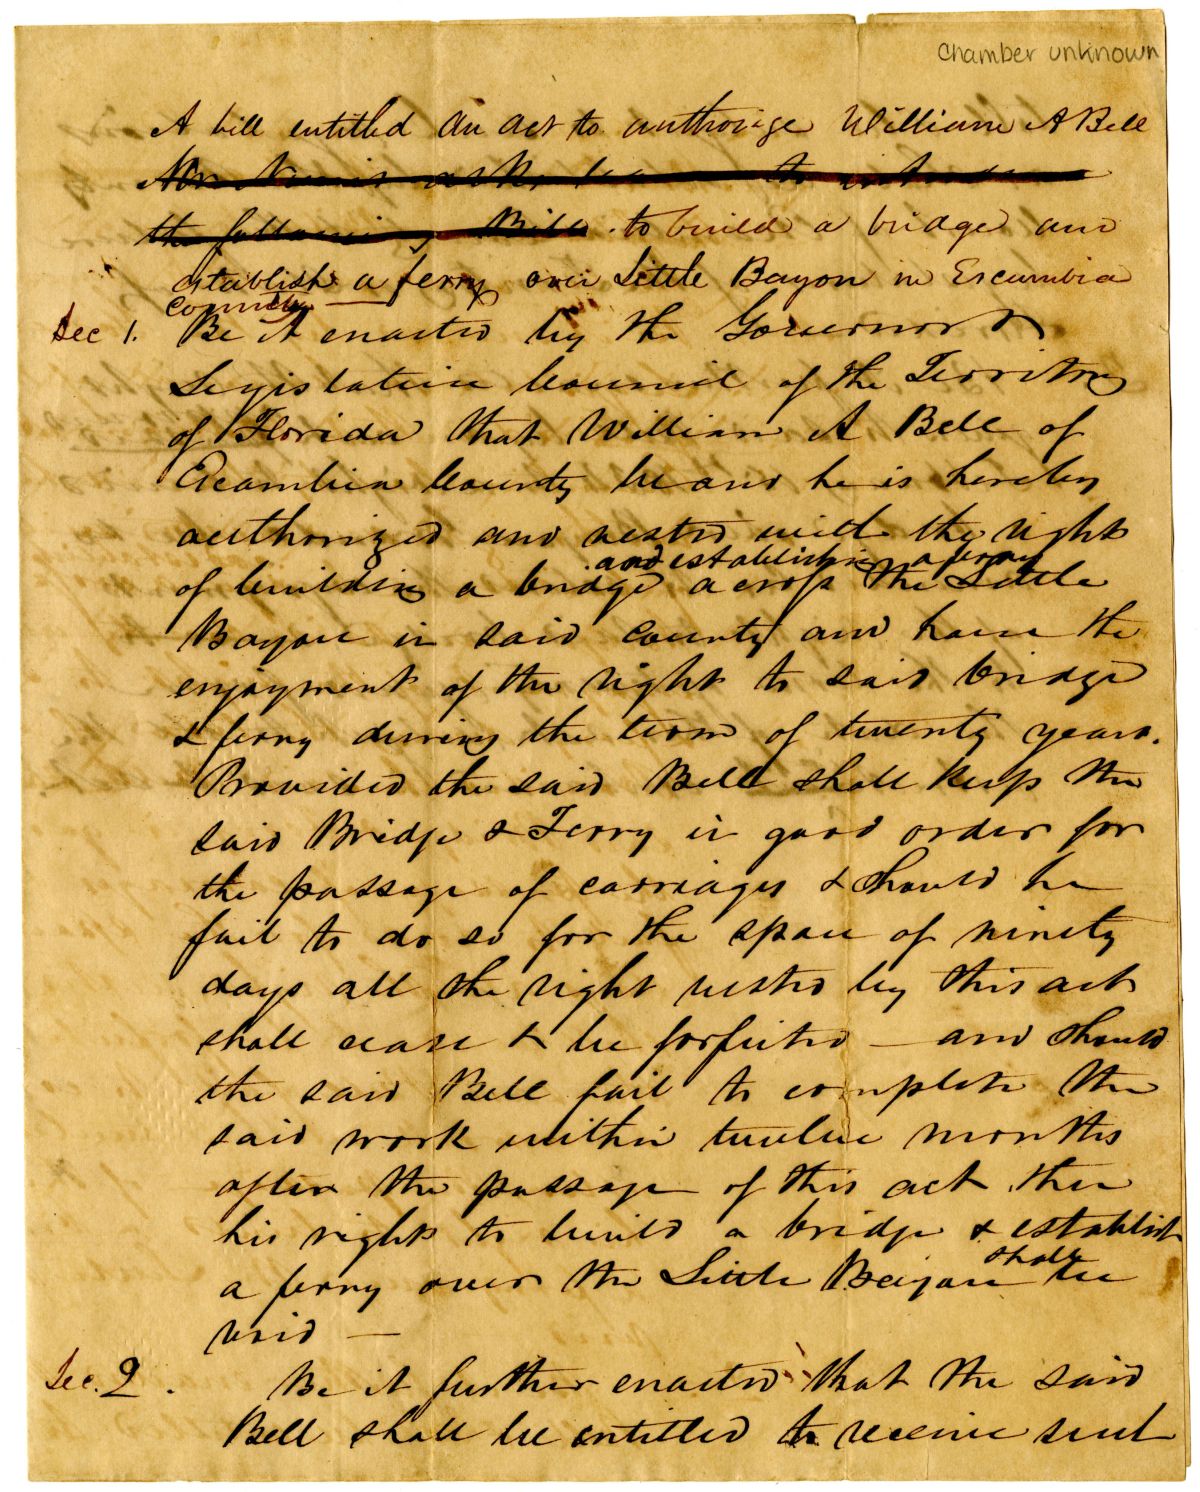 chamber unknown
A bill entitled An act to authorize William A Bell
the following Bill to build a bridge and
establish a ferry over Little Bayou in Escambia
County —
Sec 1. Be it enacted by the Governor &
Legislative Council of the Territory
of Florida that William A Bell of
Escambia County be and he is hereby
authorized and vested with the right
and establishing a ferry
of building a bridge across the Little
Bayou in said county and have the
enjoyment of the right to said bridge
& ferry during the term of twenty years.
Provided the said Bell shall keep the
said Bridge & Ferry in good order for
the passage of carriages & should he
fail to do so for the space of ninety
days all the right vested by this act
shall cease & be forfeited — and should
the said Bell fail to complete the
said work within twelve months
after the passage of this act then
his right to build a bridge & establish
a ferry over the Little Bayou shall be
void —
Sec. 2. Be it further enacted that the said
Bell shall be entitled to receive such